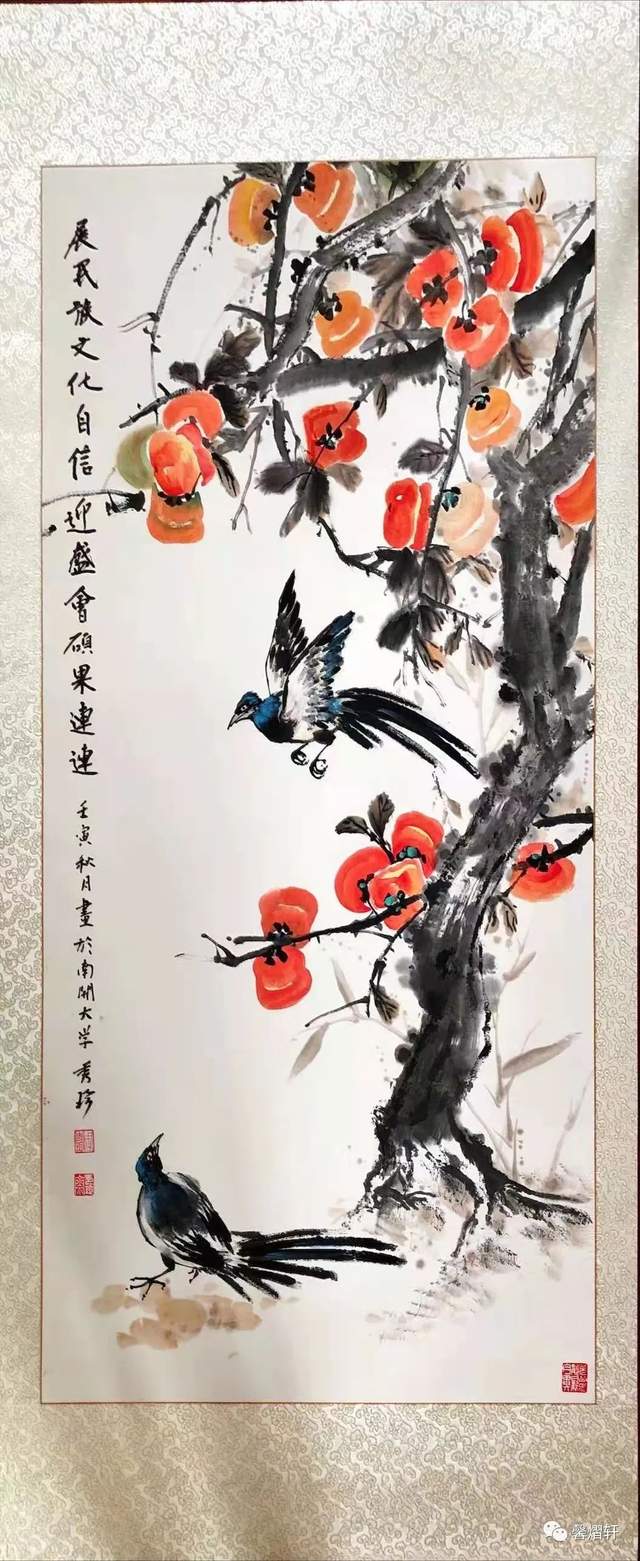 展民族文化自信迎盛會碩果連連
壬寅秋月畫於南開大学秀珍
馨熠轩